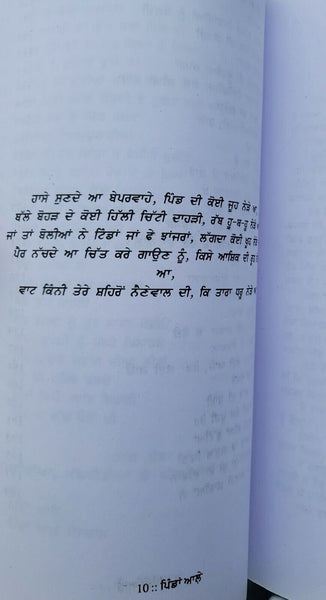 ਹਾਸੇ ਸੁਣਦੇ ਆ ਬੇਪਰਵਾਹੇ, ਪਿੰਡ ਦੀ ਕੋਈ ਜੂਹ ਨੇੜੇ ਆ
ਥੱਲੇ ਬੋਹੜ ਦੇ ਕੋਈ ਹਿੱਲੀ ਚਿੱਟੀ ਦਾਹੜੀ, ਰੱਬ ਹੂ-ਬ-ਹੂ ਨੇੜੇ
ਜਾਂ ਤਾਂ ਬੋਲੀਆਂ ਨੇ ਟਿੰਡਾਂ ਜਾਂ ਫੇ ਝਾਂਜਰਾਂ, ਲੱਗਦਾ ਕੋਈ ਖੂਹ ਨੇੜੇ
ਪੈਰ ਨੱਚਦੇ ਆ ਚਿੱਤ ਕਰੇ ਗਾਉਣ ਨੂੰ, ਕਿਸੇ ਆਸ਼ਿਕ ਦੀ
ਆ,
ਵਾਟ ਕਿੰਨੀ ਤੇਰੇ ਸ਼ਹਿਰੋਂ ਨੈਣੇਵਾਲ ਦੀ, ਕਿ ਤਾਰਾ ਧਰੂ ਨੇੜੇ
10 :: ਪਿੰਡਾਂ ਆਲ਼ੇ